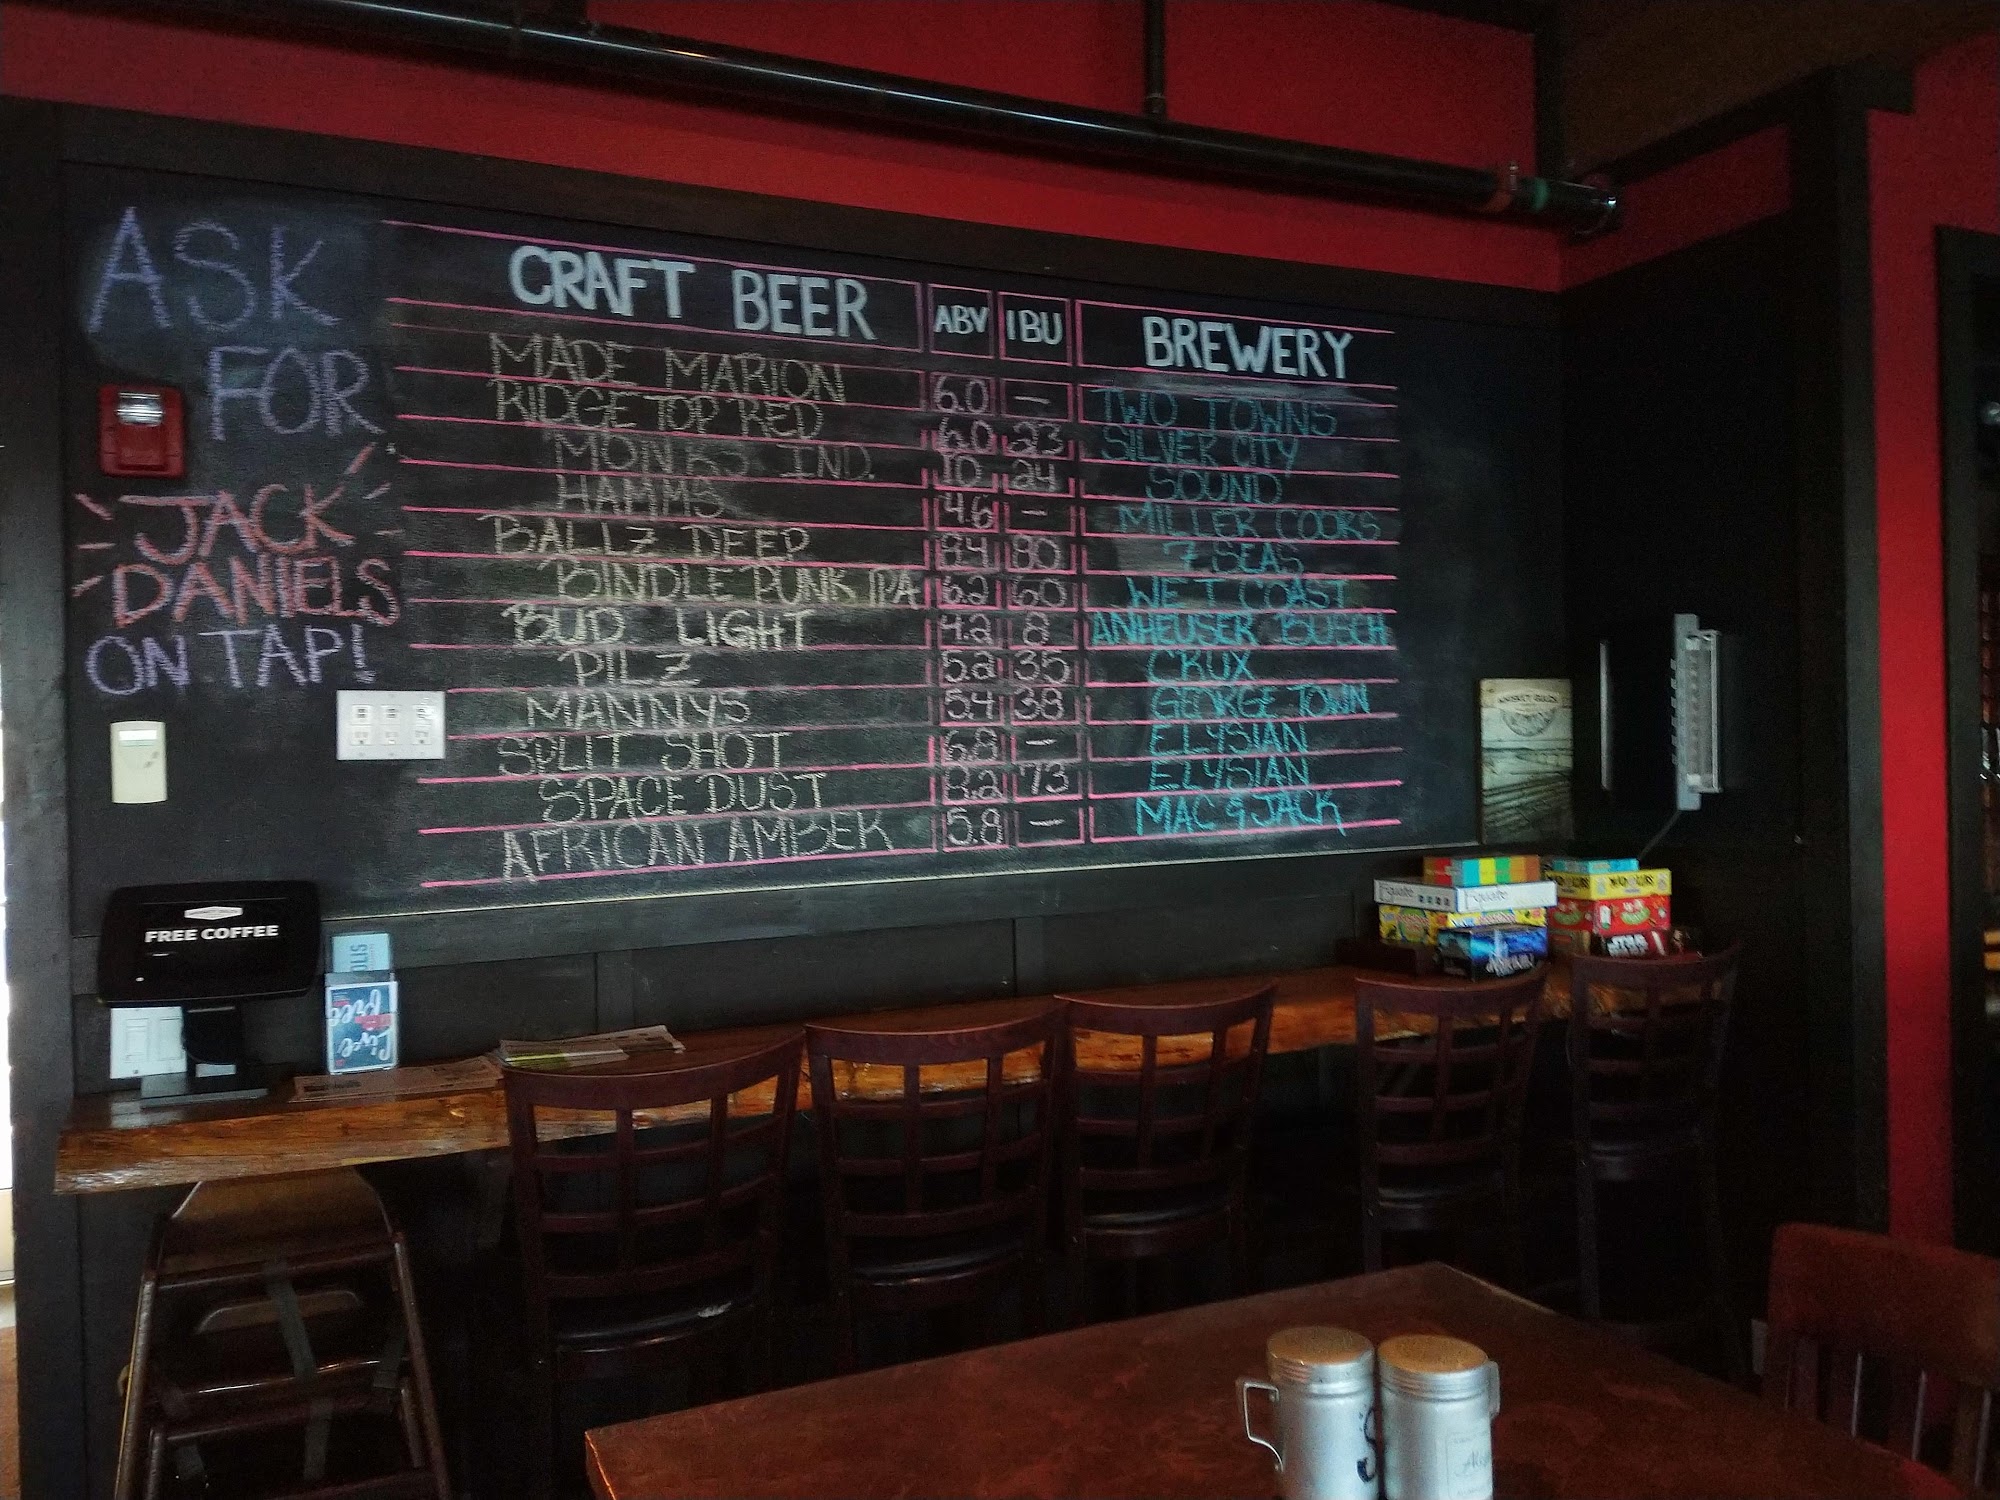 ASK
FOR
JACK
DANIELS
ON TAP!
CRAFT BEER ABV IBU BREWERY
MADE MARION 6.0 — TWO TOWNS
RIDGE TOP RED 6.0 23 SILVER CITY
MONKS IND. 10 24 SOUND
HAMMS 4.6 — MILLER COORS
BALLZ DEEP 8.4 80 7 SEAS
BINDLE PUNK IPA 6.2 60 WET COAST
BUD LIGHT 4.2 8 ANHEUSER BUSCH
PILZ 5.2 35 CRUX
MANNYS 5.4 38 GEORGE TOWN
SPLIT SHOT 6.8 — ELYSIAN
SPACE DUST 8.2 73 ELYSIAN
AFRICAN AMBER 5.8 — MAC & JACK
FREE COFFEE
Live
Free
Equate
Equate
STAR